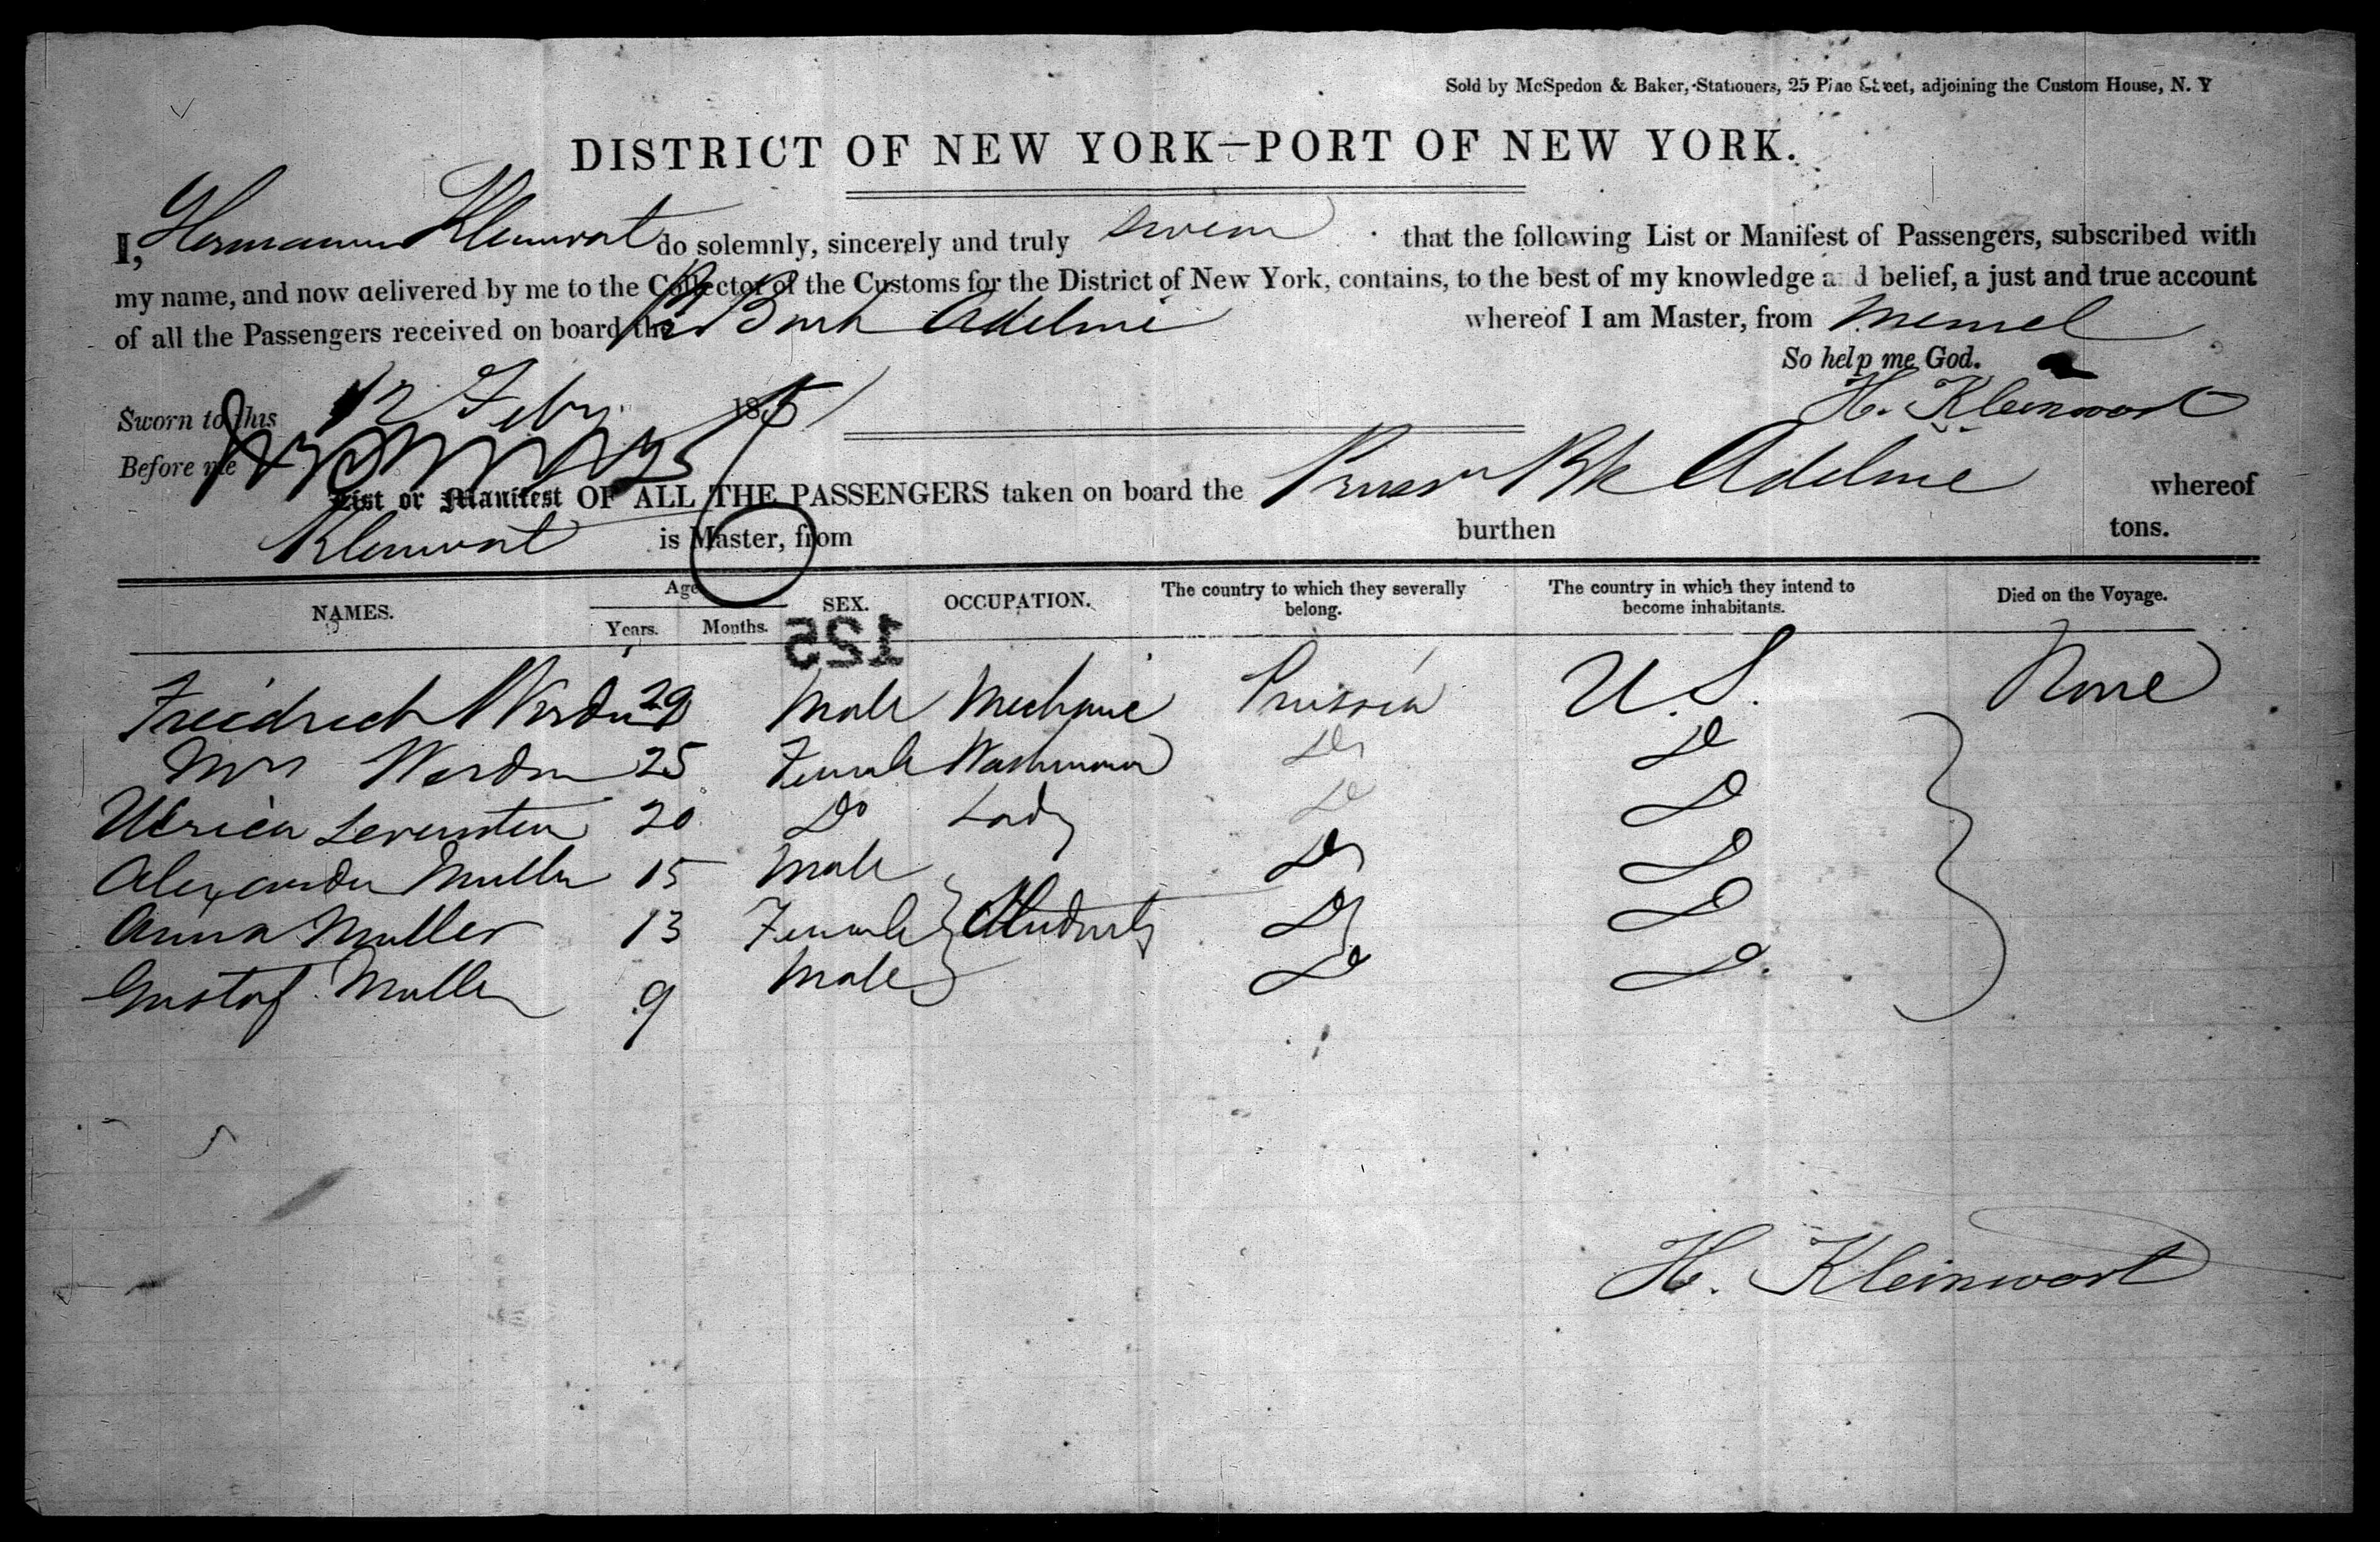 Sold by McSpedon & Baker, Stationers, 25 Pine Street, adjoining the Custom House, N. Y
DISTRICT OF NEW YORK—PORT OF NEW YORK.
I, Hermann Kleinwort do solemnly, sincerely and truly swear that the following List or Manifest of Passengers, subscribed with
my name, and now delivered by me to the Collector of the Customs for the District of New York, contains, to the best of my knowledge and belief, a just and true account
of all the Passengers received on board the Bark Adeline whereof I am Master, from Memel
So help me God.
Sworn to this 12 Feby 1851 H. Kleinwort
Before me
List or Manifest OF ALL THE PASSENGERS taken on board the Pruss Bk Adeline whereof
Kleinwort is Master, from burthen tons.
NAMES. Age SEX. OCCUPATION. The country to which they severally belong. The country in which they intend to become inhabitants. Died on the Voyage.
Years. Months.
125
Freidrich 29 Male Mechanic Prussia U.S. None
Mrs 25 Female Do Do
Ulrica 20 Do Lady Do Do
Alexander Muller 15 Male Do Do
Anna Muller 13 Female Students Do Do
Gustaf Muller 9 Male Do Do
H. Kleinwort